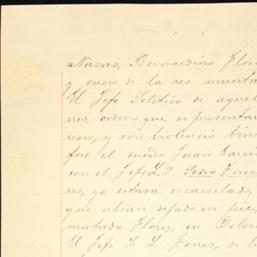 Nasas, Bernardino Flor
y cuero de la res muerta
El Jefe Politico de aquel
res, ordeno que se presentar
reses, y con biolencia bin
fue el dueño Juan Garci
con el Jefe L. D. Pedro Torre
res, ya estava encarselado,
que abian dejado en pie,
matado Florez, en Dolor
El Jefe L. L. Torres, se l